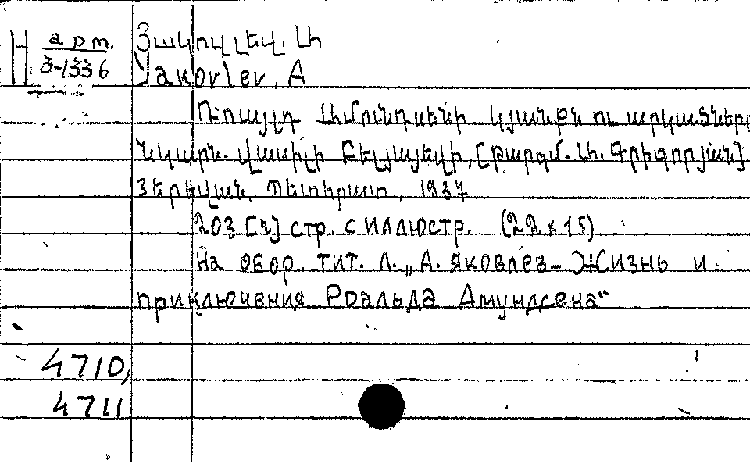 Н арм. 3-1336
Յակովլեվ, Ա
Jakovlev, A
Ռուալդ Ամունդսենի կյանքն ու արկածները
Նկարն. Վասիլի Բելյայեվի, [թարգմ. Ա. Գրիգորյան]
Յերեվան, Պետհրատ, 1937
203 [2] стр. с иллюстр. (22 x 15)
На обор. тит. л. „А. Яковлев - Жизнь и
приключения Роальда Амундсена"
4710,
4711